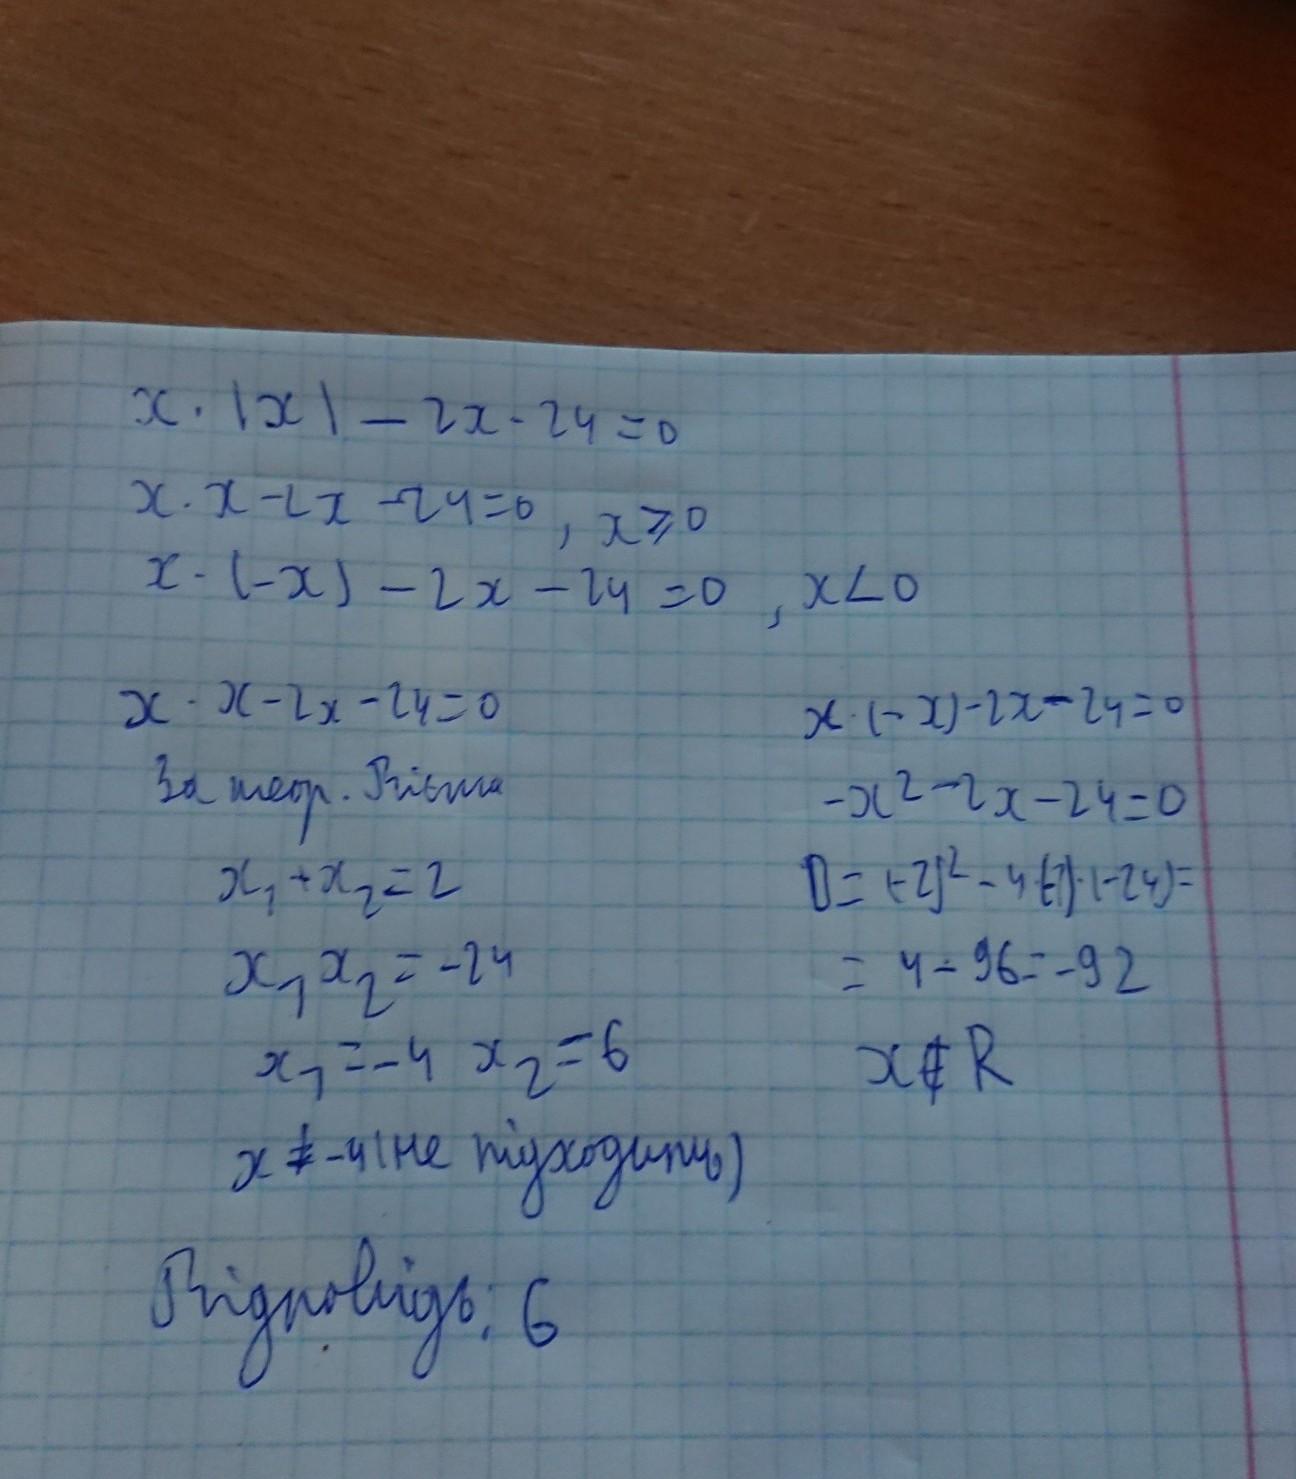 x · |x| - 2x - 24 = 0
x · x - 2x - 24 = 0, x ⩾ 0
x · (-x) - 2x - 24 = 0, x < 0
x · x - 2x - 24 = 0
За теор. Вієта
x₁ + x₂ = 2
x₁ x₂ = -24
x₁ = -4 x₂ = 6
x ≠ -4 (не підходить)
x · (-x) - 2x - 24 = 0
-x² - 2x - 24 = 0
D = (-2)² - 4·(-1)·(-24) =
= 4 - 96 = -92
x ∉ R
Відповідь: 6